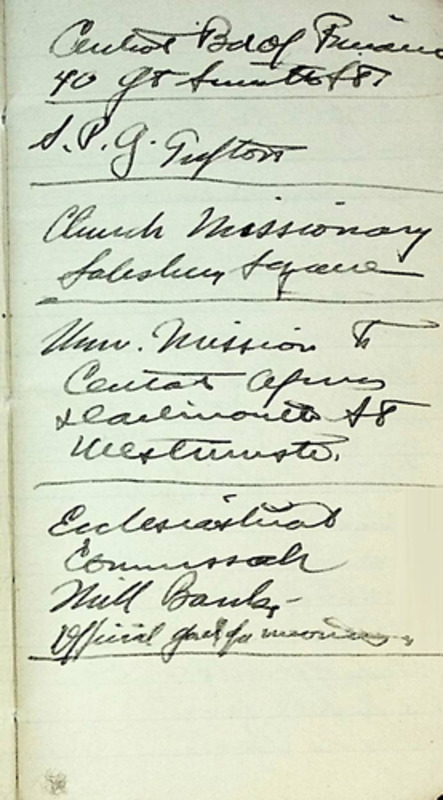 Central Bd of Finance
40 Gt Smith St
S. P. G. Tufton
Church Missionary
Salisbury Square
Univ. Mission to
Central Africa
Dartmouth St
Westminster.
Ecclesiastical
Mill Bank,
Official